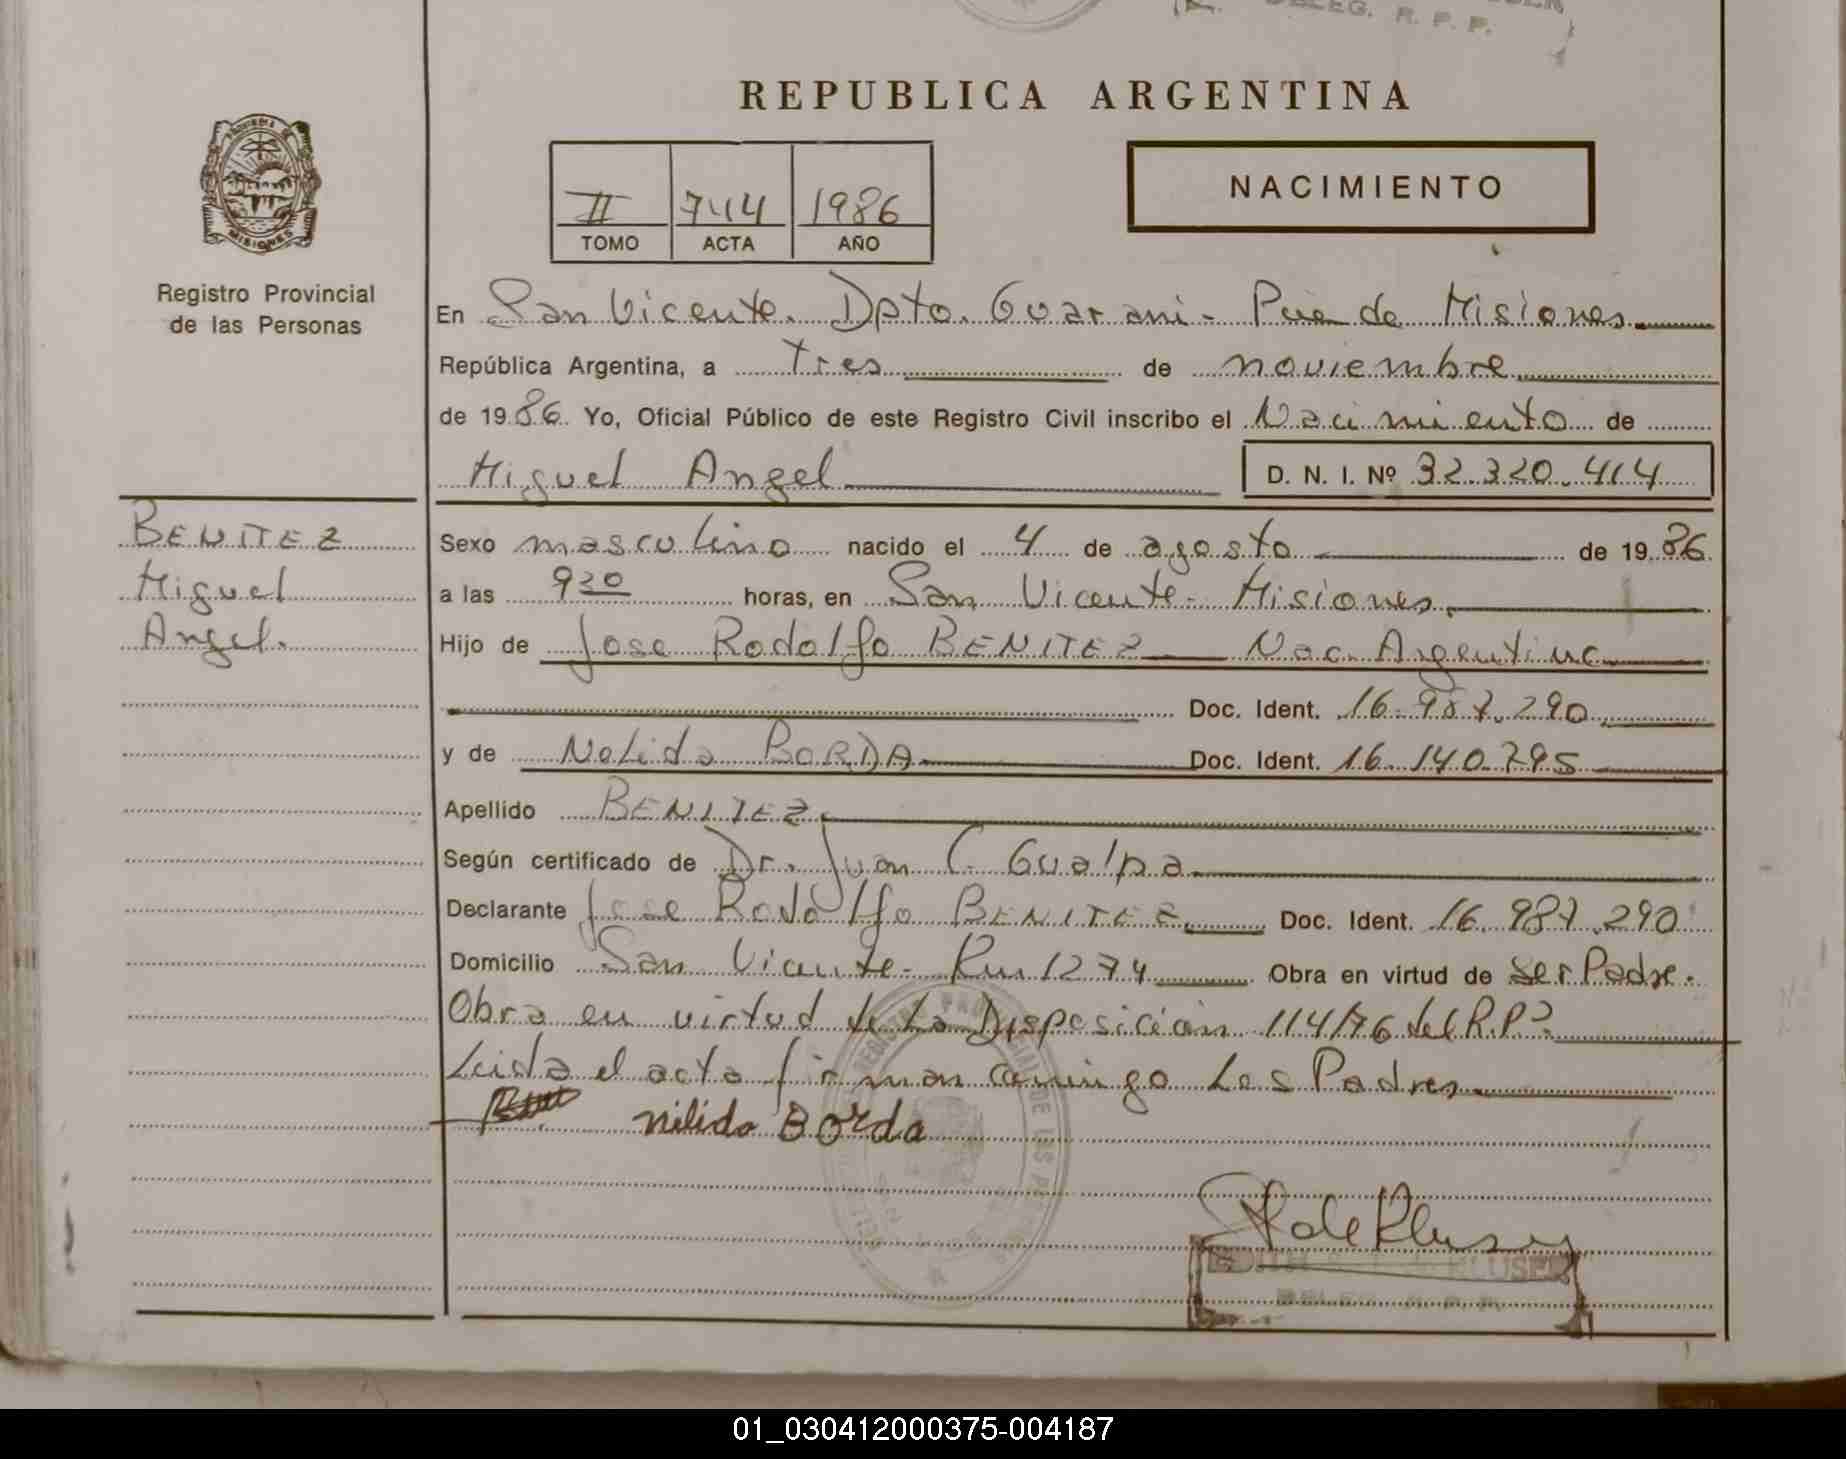 DELEG. R. P. P.
REPUBLICA ARGENTINA
II 744 1986
TOMO ACTA AÑO
NACIMIENTO
MISIONES
Registro Provincial
de las Personas
En San Vicente. Dpto. Guarani - Pcia de Misiones
República Argentina, a tres de noviembre
de 1986. Yo, Oficial Público de este Registro Civil inscribo el Nacimiento de
Miguel Angel D. N. I. Nº 32.320.414
BENITEZ
Miguel
Angel.
Sexo masculino nacido el 4 de agosto de 1986
a las 930 horas, en San Vicente - Misiones.
Hijo de Jose Rodolfo BENITEZ Nac. Argentina
Doc. Ident. 16.987.290
y de Nelida BORDA Doc. Ident. 16.140.795
Apellido BENITEZ
Según certificado de Dr. Juan C. Gualpa
Declarante Jose Rodolfo BENITEZ Doc. Ident. 16.987.290
Domicilio San Vicente - Km 1274 Obra en virtud de ser Padre.
Obra en virtud de La Disposición 114/76 del R.P.P.
Leida el acta firman conmigo Los Padres
nilida Borda
KLUSER
DELEG. R. P. P.
01_030412000375-004187